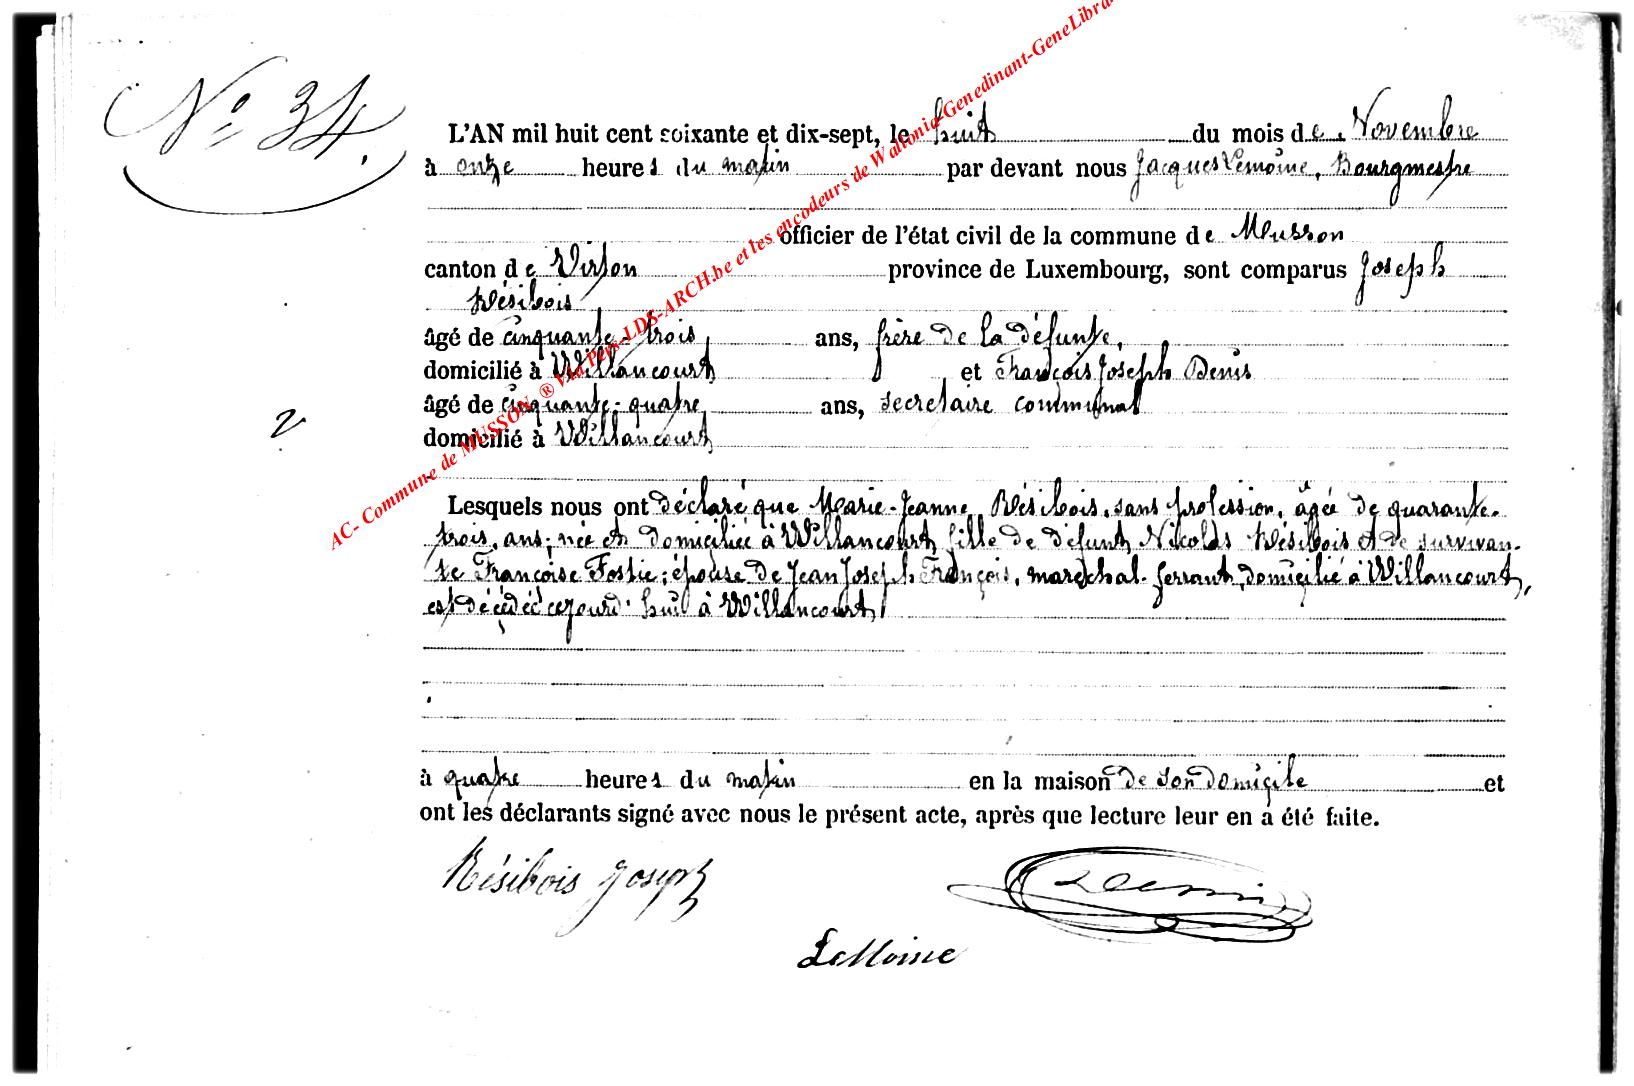 N° 34.
L'AN mil huit cent soixante et dix-sept, le huit du mois de Novembre
à onze heures du matin par devant nous Jacques Lemoine, Bourgmestre
officier de l'état civil de la commune de Musson
canton de Virton province de Luxembourg, sont comparus Joseph
Résibois
âgé de cinquante-trois ans, frère de la défunte,
domicilié à Willancourt et François Joseph Denis
âgé de cinquante-quatre ans, secretaire communal
domicilié à Willancourt
2
Lesquels nous ont déclaré que Marie-Jeanne Résibois, sans profession, âgée de quarante-
trois, ans; née et domiciliée à Willancourt, fille de défunt Nicolas Résibois et de survivan-
te Françoise Fostie; épouse de Jean Joseph François, maréchal-ferrant, domicilié à Willancourt,
est décédée cejourd'hui à Willancourt
à quatre heures du matin en la maison de son domicile et
ont les déclarants signé avec nous le présent acte, après que lecture leur en a été faite.
Résibois Joseph
Denis
LeMoine
AC- Commune de MUSSON ® Via Pers-LDS-ARCH.be et les encodeurs de Wallonia-Genedinant-GeneLibra